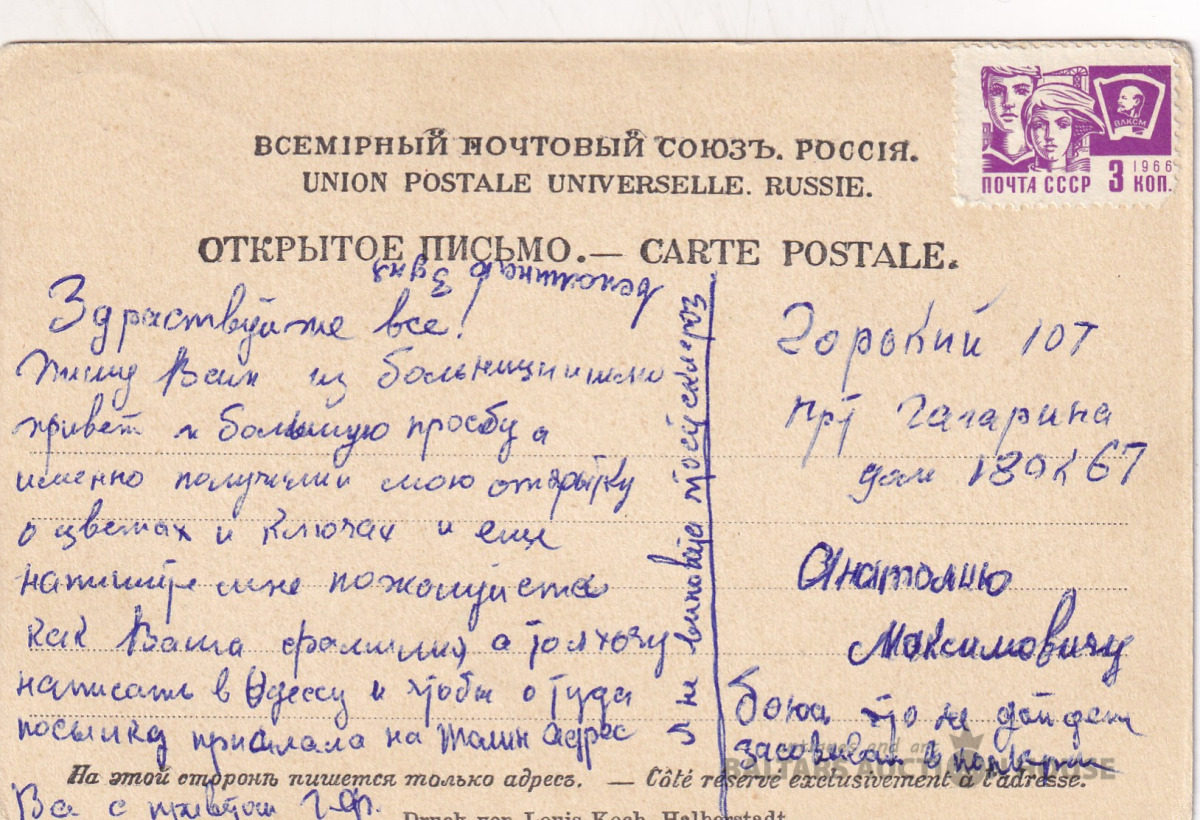 ВСЕМІРНЫЙ ПОЧТОВЫЙ СОЮЗЪ. РОССІЯ.
UNION POSTALE UNIVERSELLE. RUSSIE.
ОТКРЫТОЕ ПИСЬМО.— CARTE POSTALE.
ВЛКСМ
1966
ПОЧТА СССР 3 КОП.
Здраствуйте все!
Пишу Вам из больници и шлю
привет и большую просбу а
именно получили мою открытку
о цветах и ключах и еще
напишите мне пожалуйста
как Ваша фамилия, а то я хочу
написать в Одессу и чтобы оттуда
посылку прислала на Талин адрес
Ва с приветом
я не виновата это все склероз
Горький 107
прт Гагарина
дом 189 к 67
Анатолию
Максимовичу
боюсь что не дойдет
На этой сторонѣ пишется только адресъ. — Côté réservé exclusivement à l'adresse.
antiques and art
Druck von Louis Koch, Halberstadt